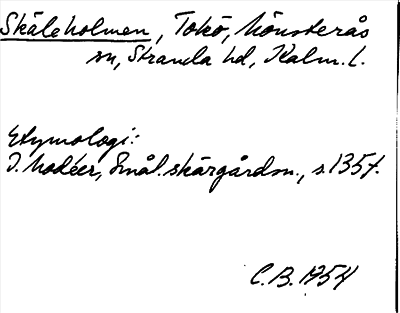 Skäleholmen, Tokö, Mönsterås
sn, Stranda hd, Kalm. l.
Etymologi:
I. Modéer, Smål. skärgårdsn., s. 135f.
C.B. 1954